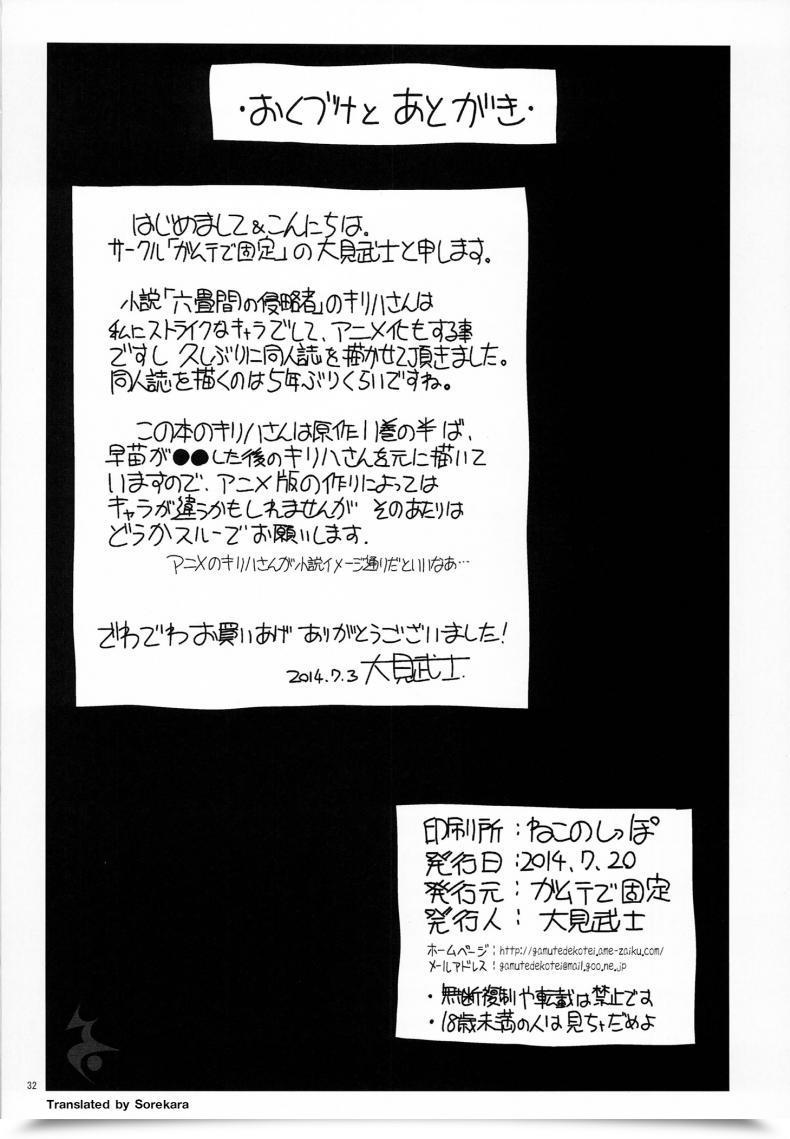 ・おくづけと あとがき・
はじめまして&こんにちは。
サークル「ガムテで固定」の大見武士と申します。
小説「六畳間の侵略者」のキリハさんは
私にストライクなキャラでして、アニメ化もする事
ですし 久しぶりに同人誌を描かせて頂きました。
同人誌を描くのは5年ぶりくらいですね。
この本のキリハさんは原作11巻の半ば、
早苗が●●した後のキリハさんを元に描いて
いますので、アニメ版の作りによっては
キャラが違うかもしれませんが そのあたりは
どうかスルーでお願いします.
アニメのキリハさんが小説イメージ通りだといいなあ…
でわでわお買いあげ ありがとうございました!
2014.7.3 大見武士.
印刷所:ねこのしっぽ
発行日:2014.7.20
発行元:ガムテで固定
発行人:大見武士
ホームページ:http://gamutedekotei.ame-zaiku.com/
メールアドレス:gamutedekotei@mail.goo.ne.jp
・無断復制や転載は禁止です
・18歳未満の人は見ちゃだめよ
32
Translated by Sorekara